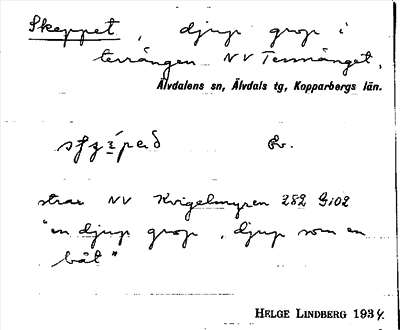 Skeppet, djup grop i
terrängen NV Tennänget,
Älvdalens sn, Älvdals tg, Kopparbergs län.
Ev.
strax NV Kvigelmyren 282 G:02
"en djup grop, djup som en
båt"
HELGE LINDBERG 1934.